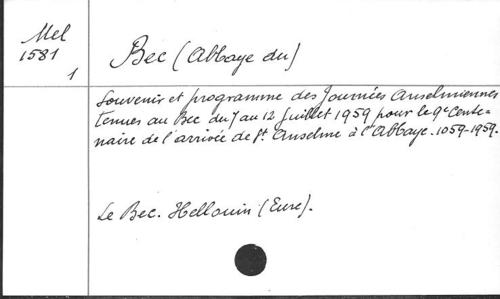 Mel
1581
1
Bec (Abbaye du)
Souvenir et programme des Journées Anselmiennes
tenues au Bec du 7 au 12 Juillet 1959 pour le 9e Cente-
naire de l'arrivée de St. Anselme à l'Abbaye. 1059-1959.
Le Bec. Hellouin (Eure).